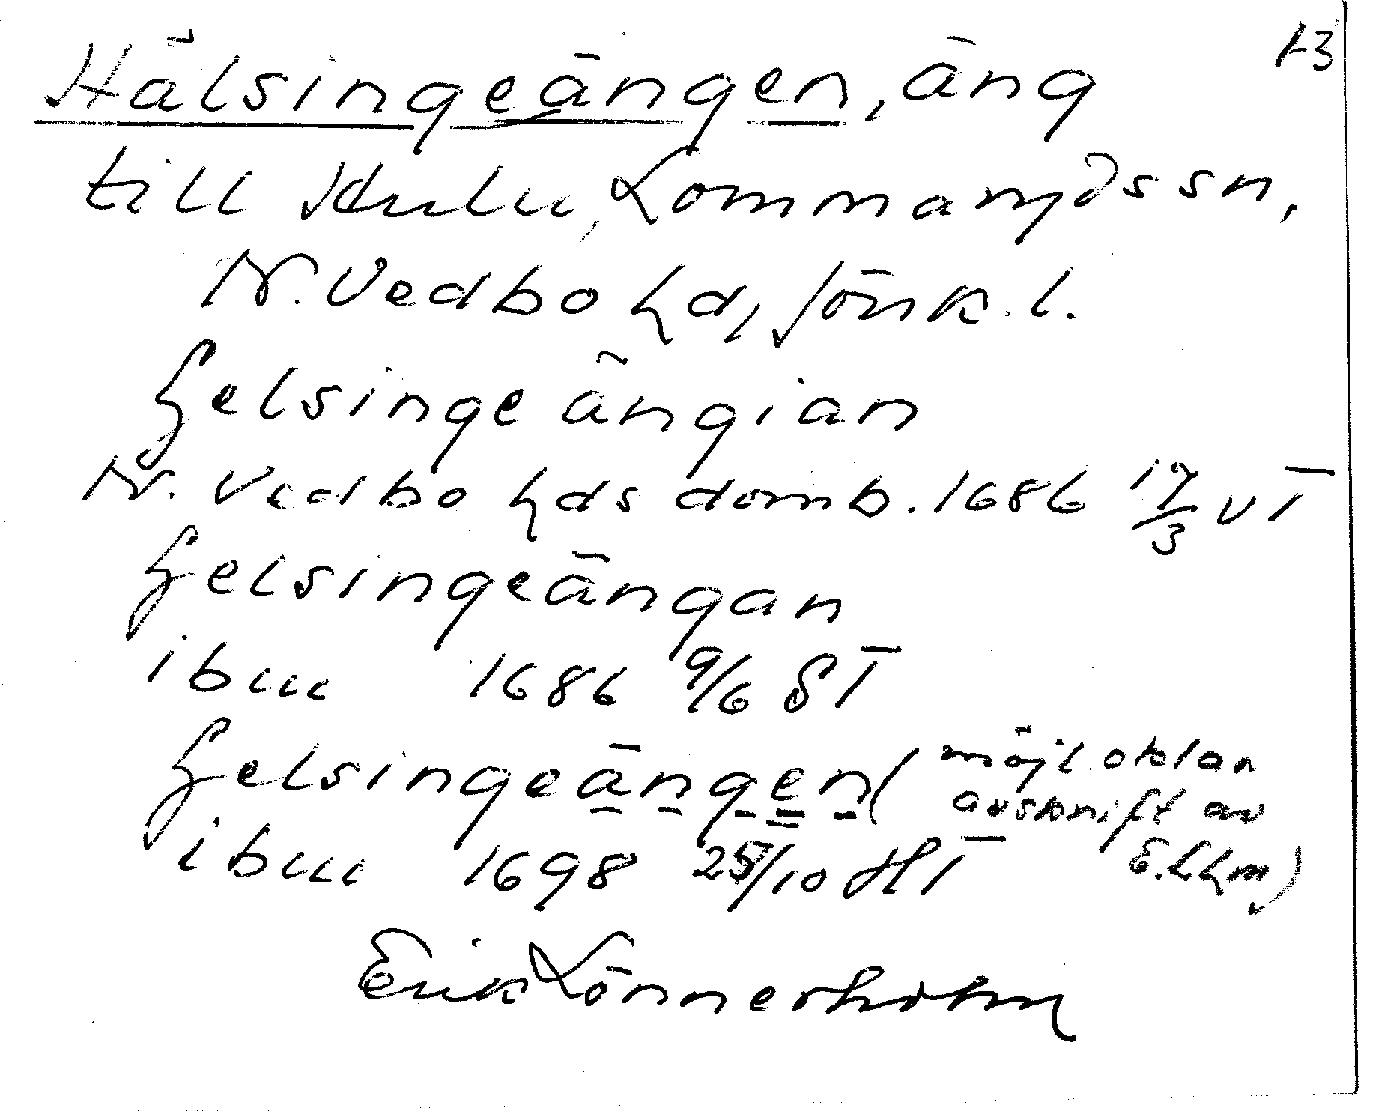 13
Hälsingeängen, äng
till Hulu, Lommaryds sn,
N. Vedbo hd, Jönk. l.
Helsinge ängian
N. Vedbo hds domb. 1686 17/3 VT
Helsingeängan
ibm 1686 9/6 ST
Helsingeängen (möjl oklar
avskrift av
E. Lhm)
ibm 1698 25/10 HT
Erik Lönnerholm